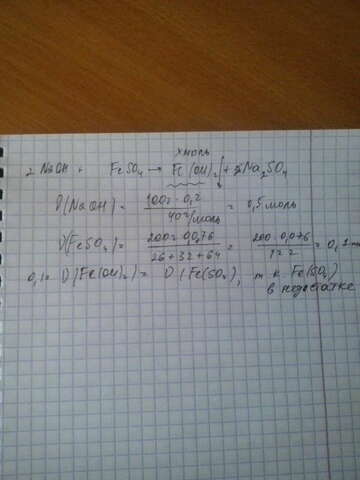 х моль
2 NaOH + FeSO₄ → Fe(OH)₂↓ + Na₂SO₄
ν(NaOH) = 100г · 0,2 / 40 г/моль = 0,5 моль
ν(FeSO₄) = 200 · 0,076 / 26 + 32 + 64 = 200 · 0,076 / 122 = 0,1
ν(Fe(OH)₂) = ν(Fe(SO₄), т к Fe(SO₄)
в недостатке